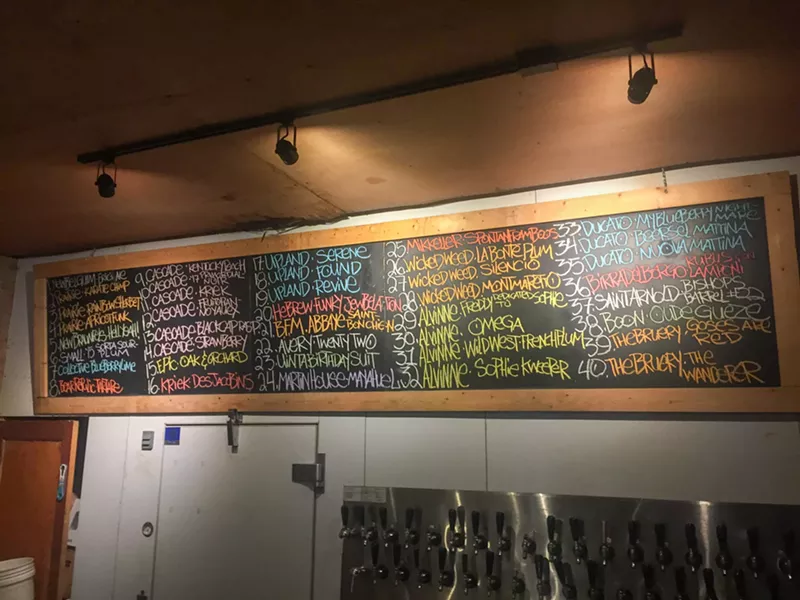 3 PRAIRIE RAINBOW SHERBET
4 PRAIRIE APRICOT FUNK
6 SMALL SORTA SOUR
7 COLLECTIVE BLUEBERRY LIME
8
9 CASCADE KENTUCKY PEACH
10 CASCADE
11 CASCADE KRIEK
12 CASCADE
NOYAUX
13 CASCADE BLACKCAP RASP
14 CASCADE STRAWBERRY
15 EPIC OAK & ORCHARD
16 KRIEK DES JACOBINS
17 UPLAND: SERENE
18 UPLAND FOUND
19 UPLAND REVIVE
20 HEBREW FUNKY JEWBELATION
21 B.F.M. ABBAYE SAINT-
BON-CHIEN
22 AVERY TWENTY TWO
23 UINTA BIRTHDAY SUIT
24 MARTIN HOUSE MAYAHUEL
25 MIKKELLER SPONTANFRAMBOOS
26 WICKED WEED LA BONTE PLUM
27 WICKED WEED SILENCIO
28 WICKED WEED MONTMARETTO
29 ALVINNE FREDDY SOPHIE
30 ALVINNE: OMEGA
31 ALVINNE WILD WEST FRENCH PLUM
32 ALVINNE: SOPHIE KWEEPER
33 DUCATO MY BLUEBERRY NIGHT-
MARE
34 DUCATO BEERSEL MATTINA
35 DUCATO NUOVA MATTINA
36 BIRRA DEL BORGO RUBUS
LAMPONI
37 SAINT ARNOLD BISHOPS
BARREL #22
38 BOON: OUDE GUEUZE
39 THE BRUERY: GOSES ARE
RED
40 THE BRUERY: THE
WANDERER